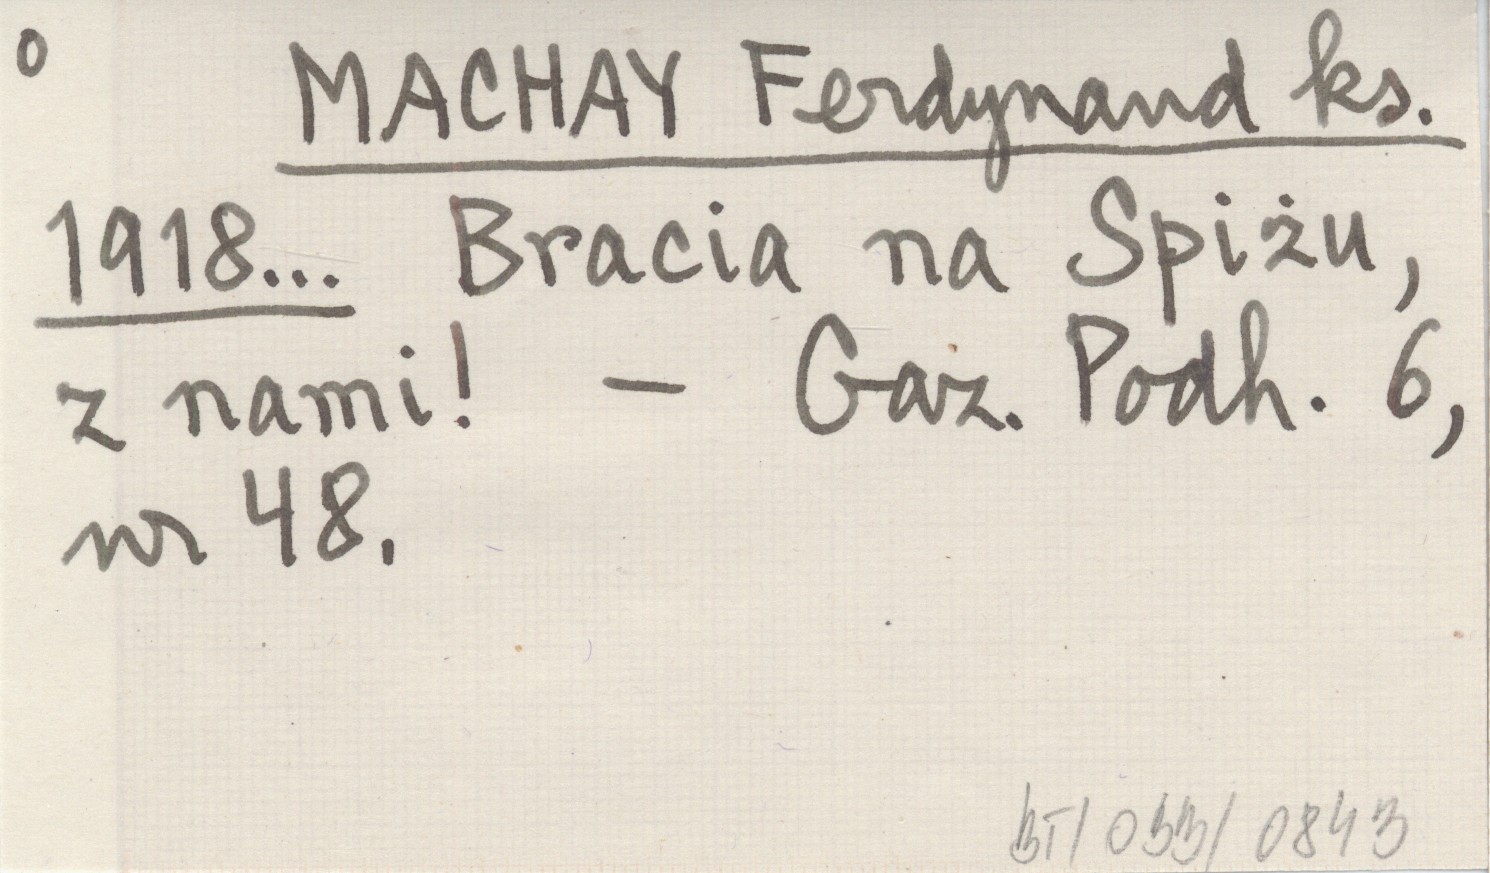 o
MACHAY Ferdynand ks.
1918... Bracia na Spiżu,
z nami! — Gaz. Podh. 6,
nr 48.
BT/033/0843